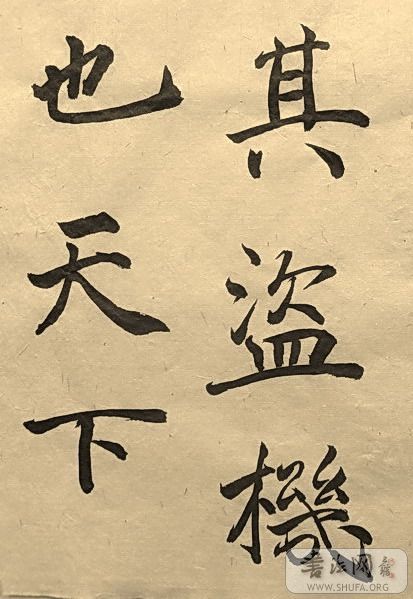 其盜機
也天下
書法网
WWW.SHUFA.ORG